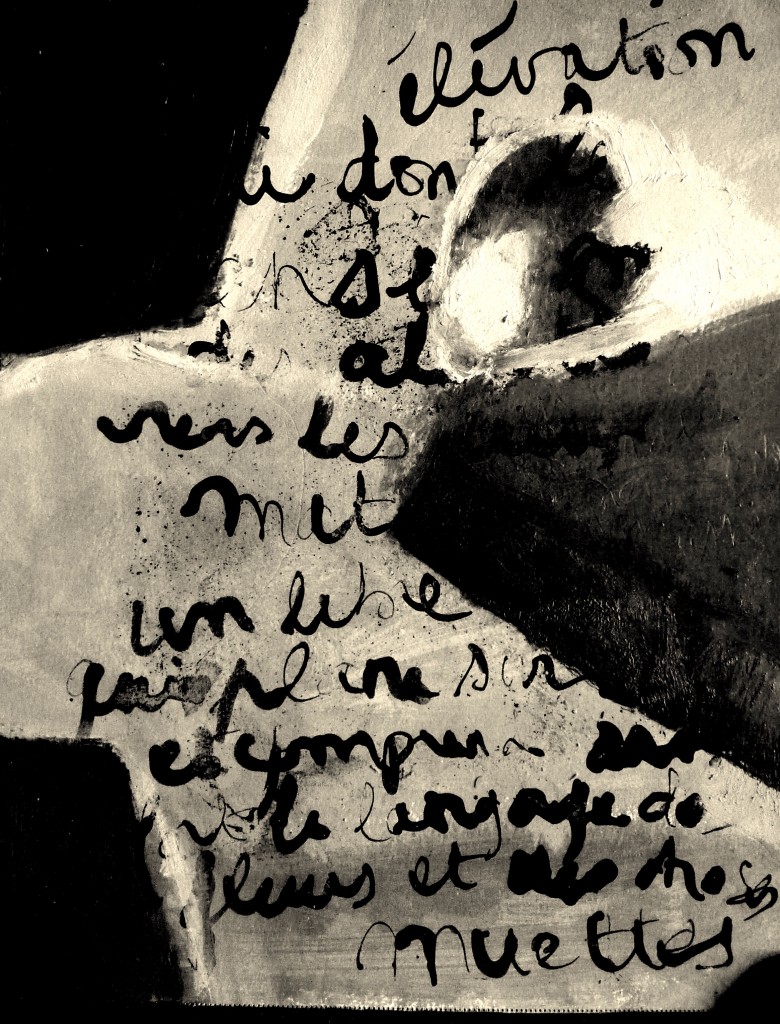 élévation
ui don
ense
des al
vers les
mat
un libre
qui plane sur
et comprend san
le langage de
fleurs et des choses
muettes